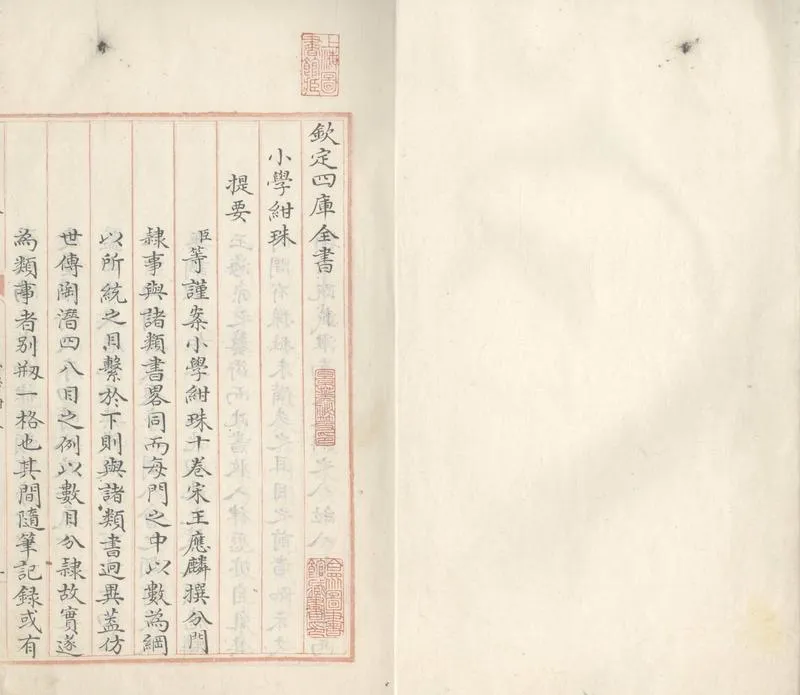 欽定四庫全書
小學紺珠
提要
臣等謹案小學紺珠十卷宋王應麟撰分門
隸事與諸類書畧同而每門之中以數為綱
以所統之目繫於下則與諸類書迥異蓋仿
世傳陶潛四八目之例以數目分隸故實遂
為類事者別剏一格也其間隨筆記録或有
上海圖書館藏